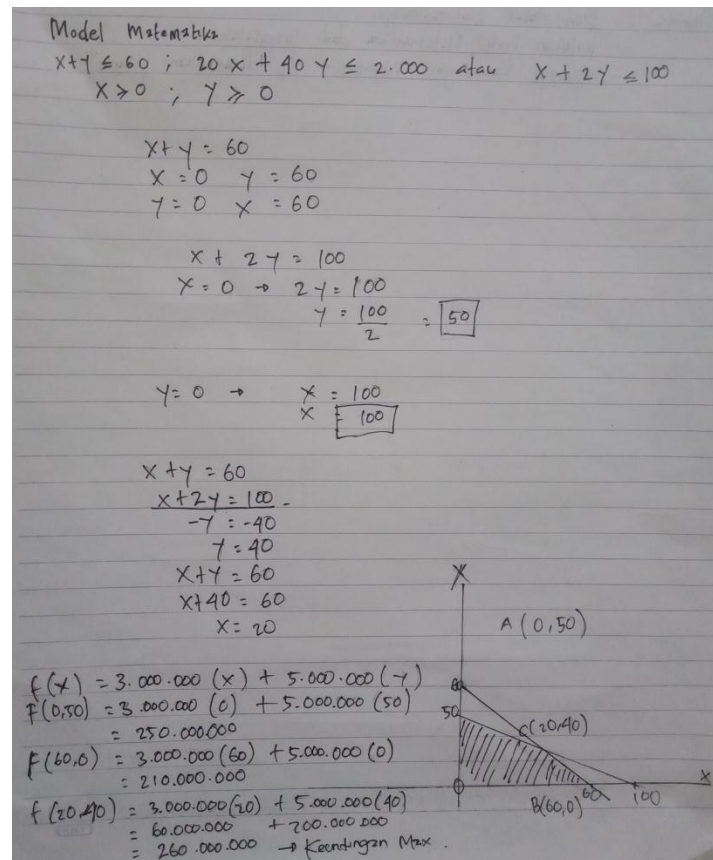 Model Matematika
X+Y ≤ 60 ; 20 X + 40 Y ≤ 2.000 atau X + 2Y ≤ 100
X ≥ 0 ; Y ≥ 0
X+ y = 60
X = 0 y = 60
y = 0 X = 60
X + 2 y = 100
X = 0 → 2 y = 100
y = 100/2 = 50
Y = 0 → X = 100
X = 100
X + y = 60
X + 2y = 100 -
-y = -40
y = 40
X + Y = 60
X + 40 = 60
X = 20
f(x) = 3.000.000 (x) + 5.000.000 (y)
F(0,50) = 3.000.000 (0) + 5.000.000 (50)
= 250.000.000
F(60,0) = 3.000.000 (60) + 5.000.000 (0)
= 210.000.000
f (20,40) = 3.000.000 (20) + 5.000.000 (40)
= 60.000.000 + 200.000.000
= 260.000.000 → Keuntungan Max.
A (0,50)
50
C(20,40)
60
100
X
B(60,0)